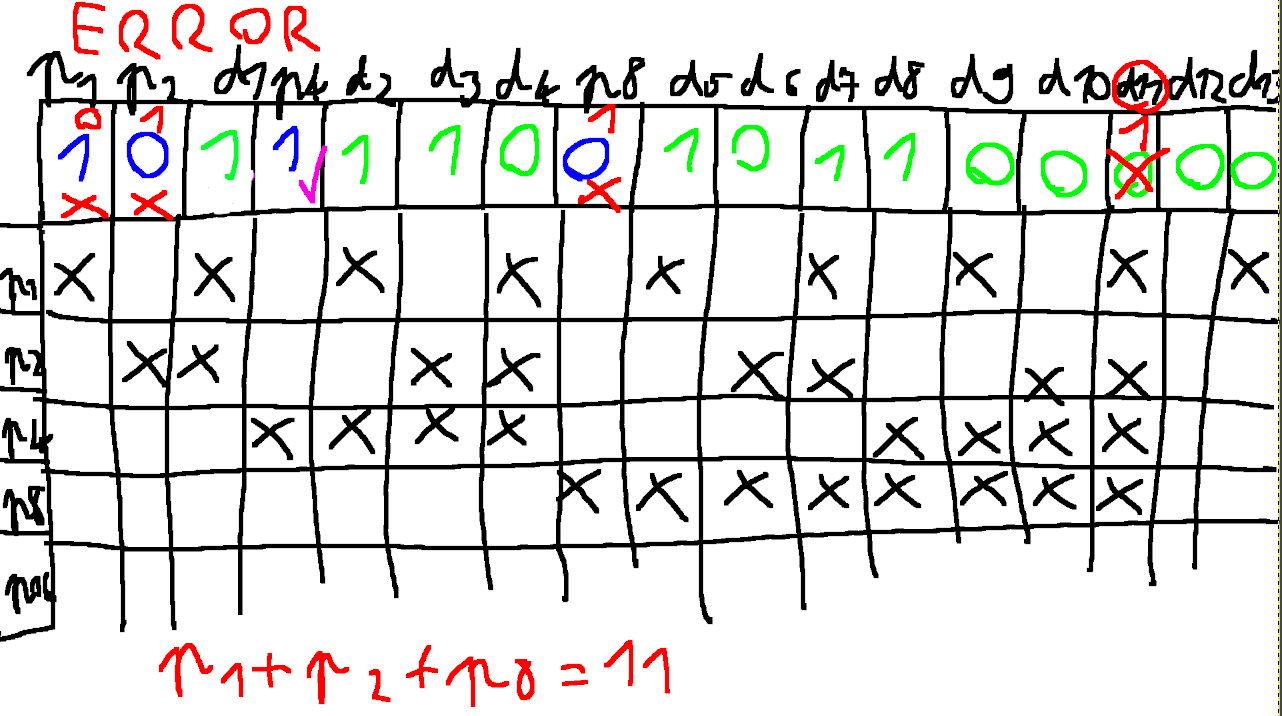 ERROR
p1 p2 d1 p4 d2 d3 d4 p8 d5 d6 d7 d8 d9 d10 d11 d12 d13
0 1 1 1
1 0 1 1 1 1 0 0 1 0 1 1 0 0 0 0 0
X X X
p1 X X X X X X X X X
p2 X X X X X X X X
p4 X X X X X X X X
p8 X X X X X X X X
p1+p2+p8=11